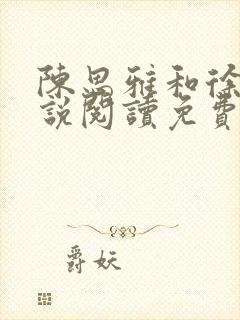 陳思雅和徐
說閱讀免費
爵妖